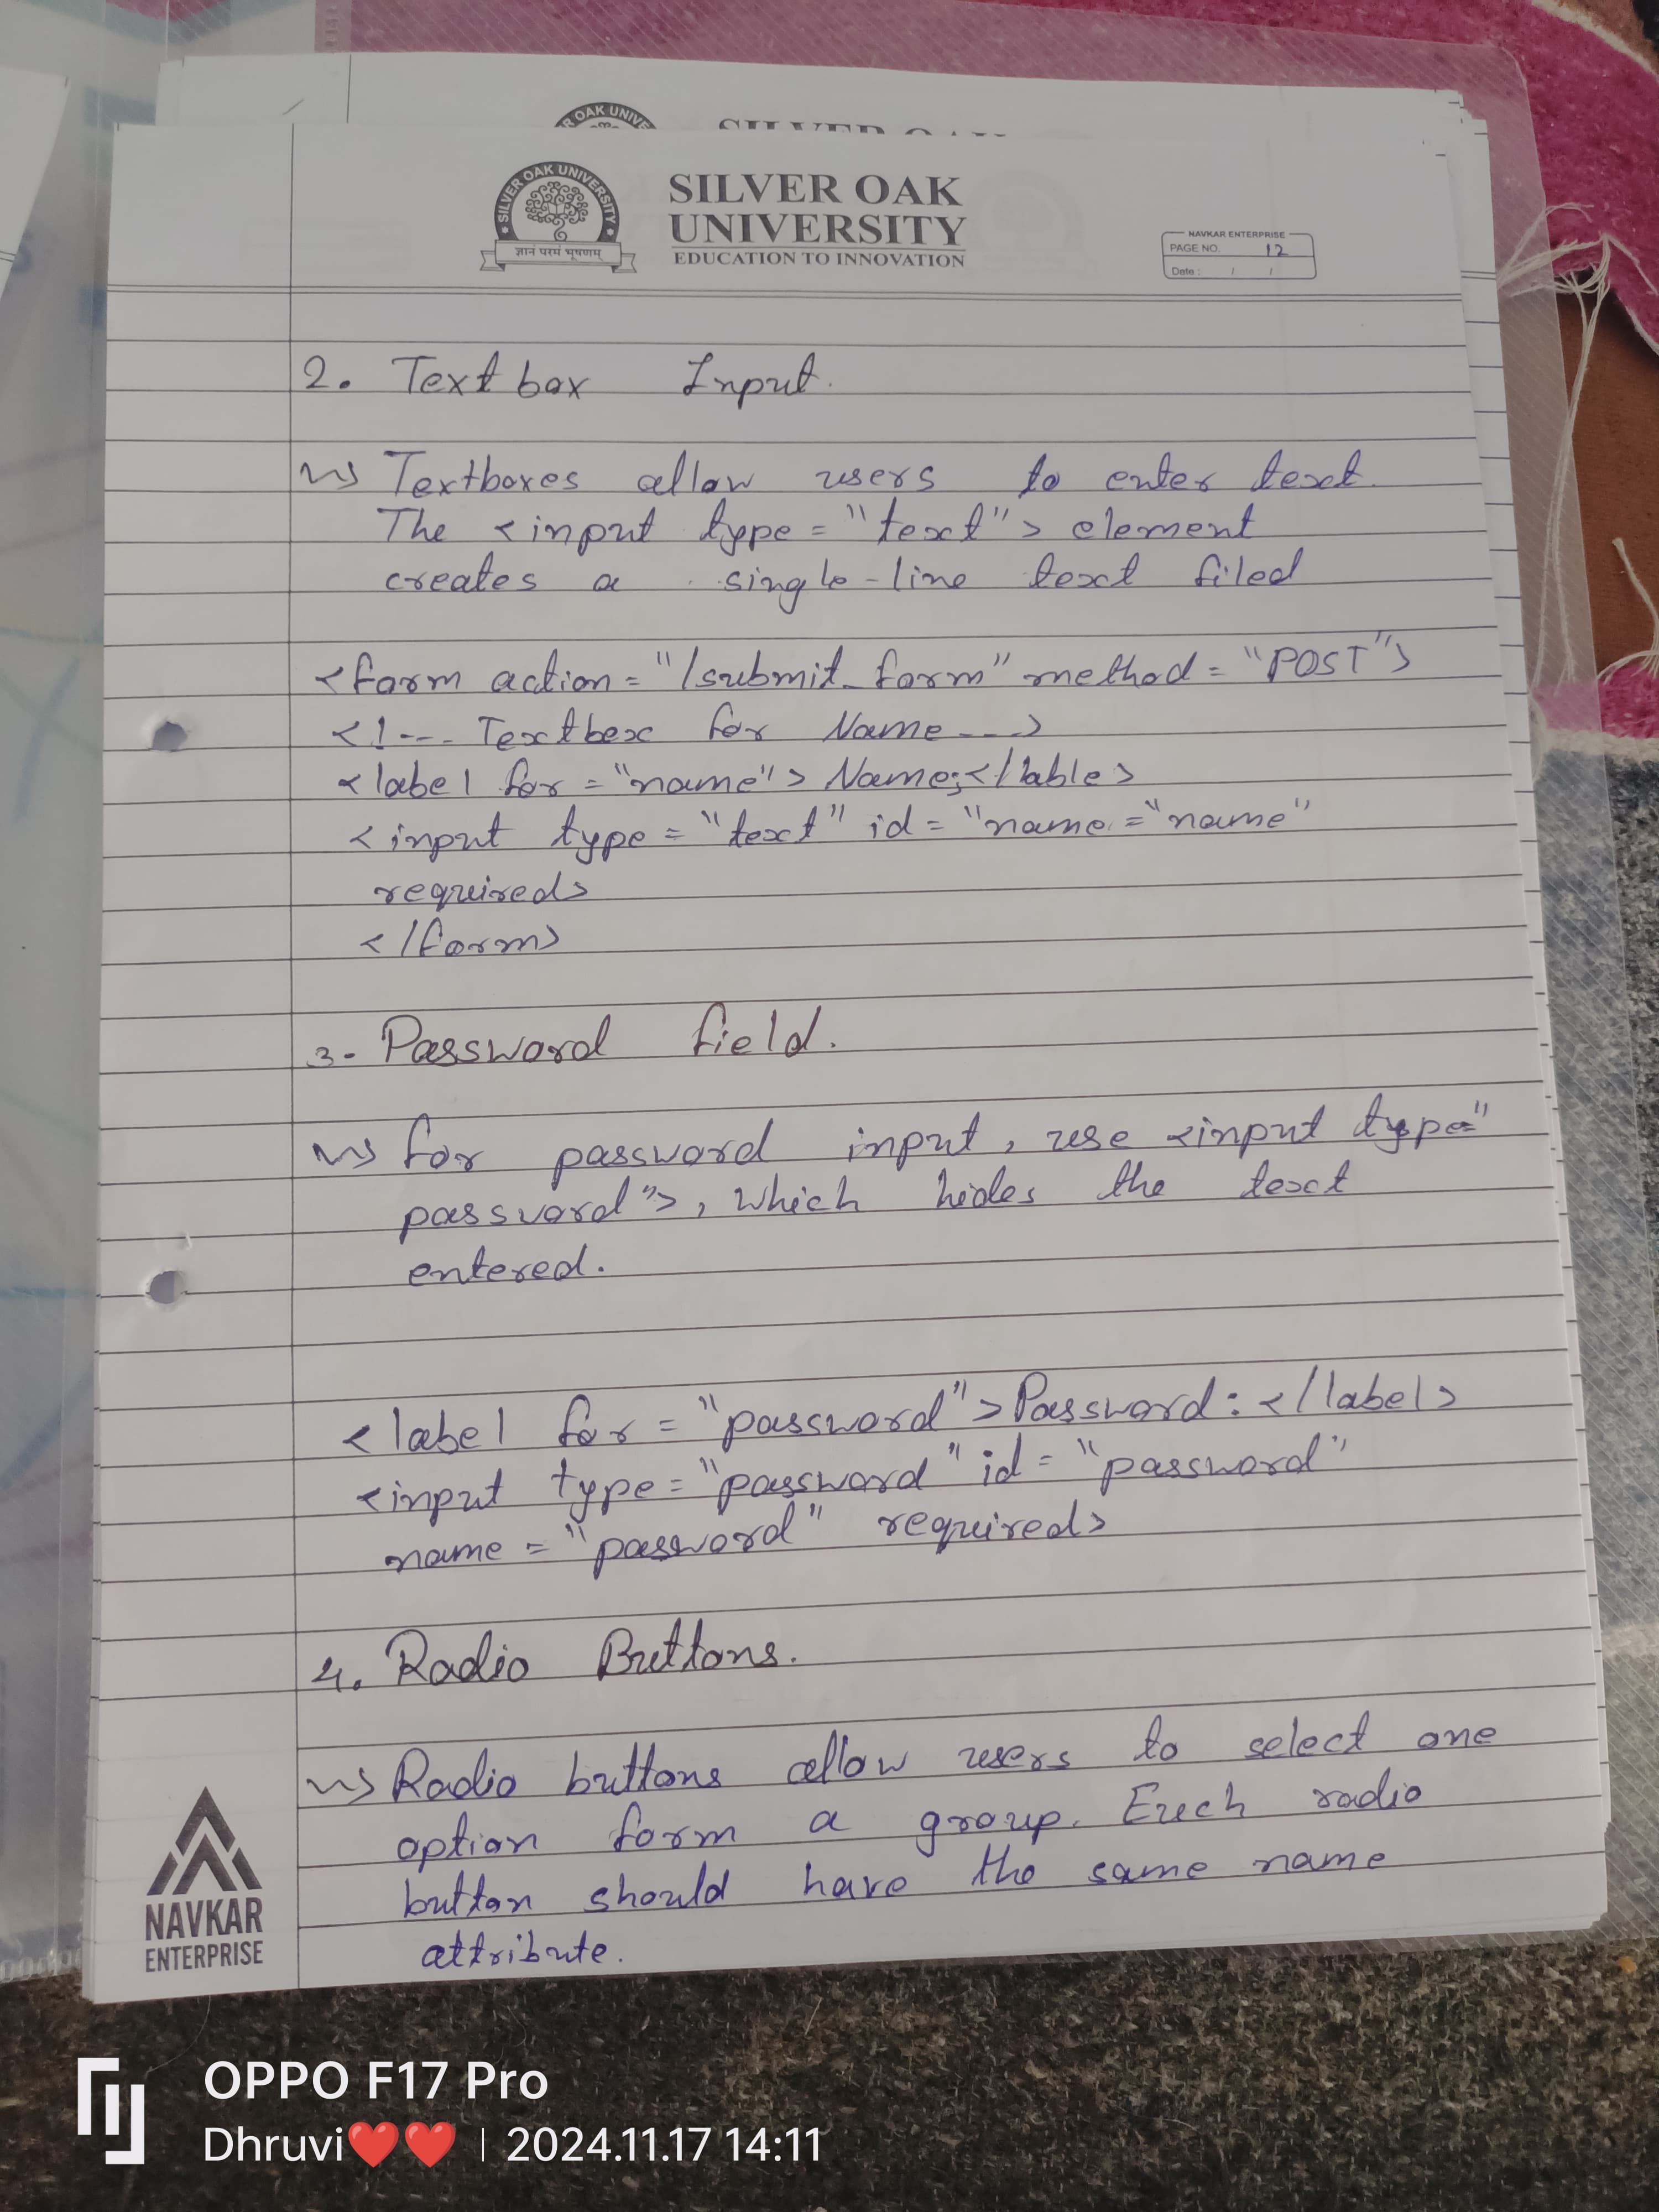 R OAK UNIVE
SILVER OAK UNIVERSITY
ज्ञानं परमं भूषणम्
SILVER OAK
UNIVERSITY
EDUCATION TO INNOVATION
NAVKAR ENTERPRISE
PAGE NO. 12
Date : / /
2. Textbox Input.
Textboxes allow users to enter text.
The <input type = "text"> element
creates a single-line text filed
<form action = "/submit_form" method = "POST">
<!--- Textbox for Name --->
<label for = "name"> Name;</lable>
<input type = "text" id = "name = "name"
required>
</form>
3- Password field.
for password input, use <input type="
password">, which hides the text
entered.
<label for = "password">Password: </label>
<input type = "password" id = "password"
name = "password" required>
4. Radio Buttons.
Radio buttons allow users to select one
option form a group. Each radio
button should have the same name
attribute.
NAVKAR
ENTERPRISE
OPPO F17 Pro
Dhruvi❤️❤️ | 2024.11.17 14:11